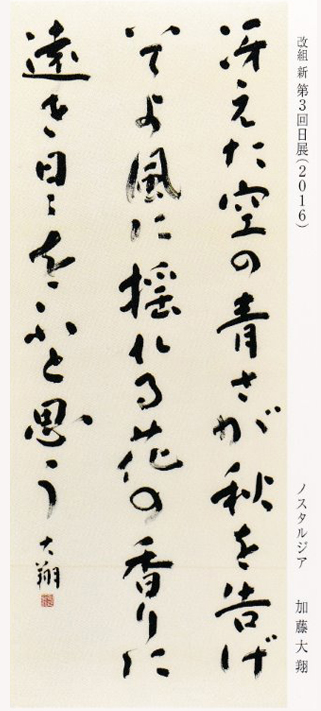 改組 新 第3回日展(2016)
ノスタルジア 加藤大翔
冴えた空の青さが秋を告げ
そよ風に揺れる花の香りに
遠き日々をふと思う
大翔